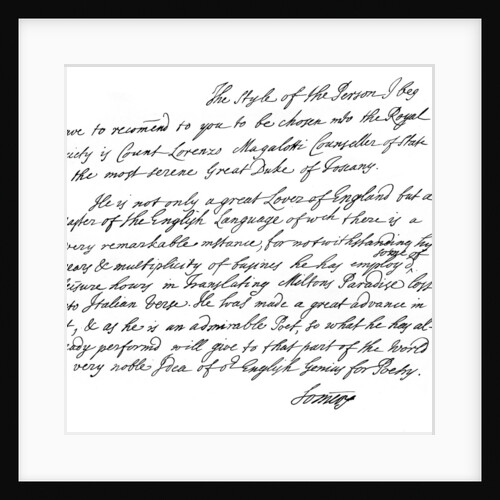 The Style of the Person I beg
ve to recom̄end to you to be chosen into the Royal
ciety is Count Lorenzo Magalotti Counseller of State
the most serene Great Duke of Toscany.
He is not only a great Lover of England but a
aster of the English Language of wch there is a
very remarkable instance, for notwithstanding his
years & multiplicity of busines he has employ'd some of
leisure hours in Translating Miltons Paradise lost
to Italian verse. He has made a great advance in
t, & as he is an admirable Poet, so what he has al
ady performd will give to that part of the World
very noble Idea of or English Genius for Poetry.
Somers